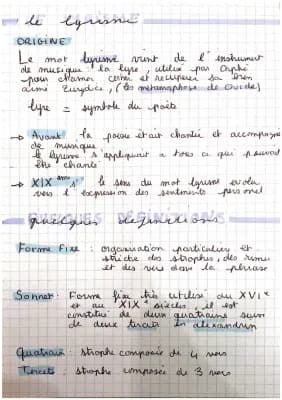 le lyrisme
ORIGINE
Le mot lyrisme vient de l'instrument
de musique la lyre, utilisé par Orphé
pour charmer et récupérer sa bien
aimé Eurydice, (les métamorphose de Ovide)
lyre = symbole du poète
→ Avant la poésie était chantée et accompagnée
de musique
le lyrisme s'appliquait a tous ce qui pouvait
être chanté
→ XIXème s' le sens du mot lyrisme évolu
vers l'expression des sentiments personel
quelques définitions
Forme Fixe : organisation particulière et
stricte des strophes, des rimes
et des vers dans la phrase
Sonnet : Forme fixe très utilisé au XVIe
et au XIXe siècles, il est
constitué de deux quatrains suivi
de deux tercets en alexandrin
Quatrain : strophe composée de 4 vers
Tercets : strophe composée de 3 vers